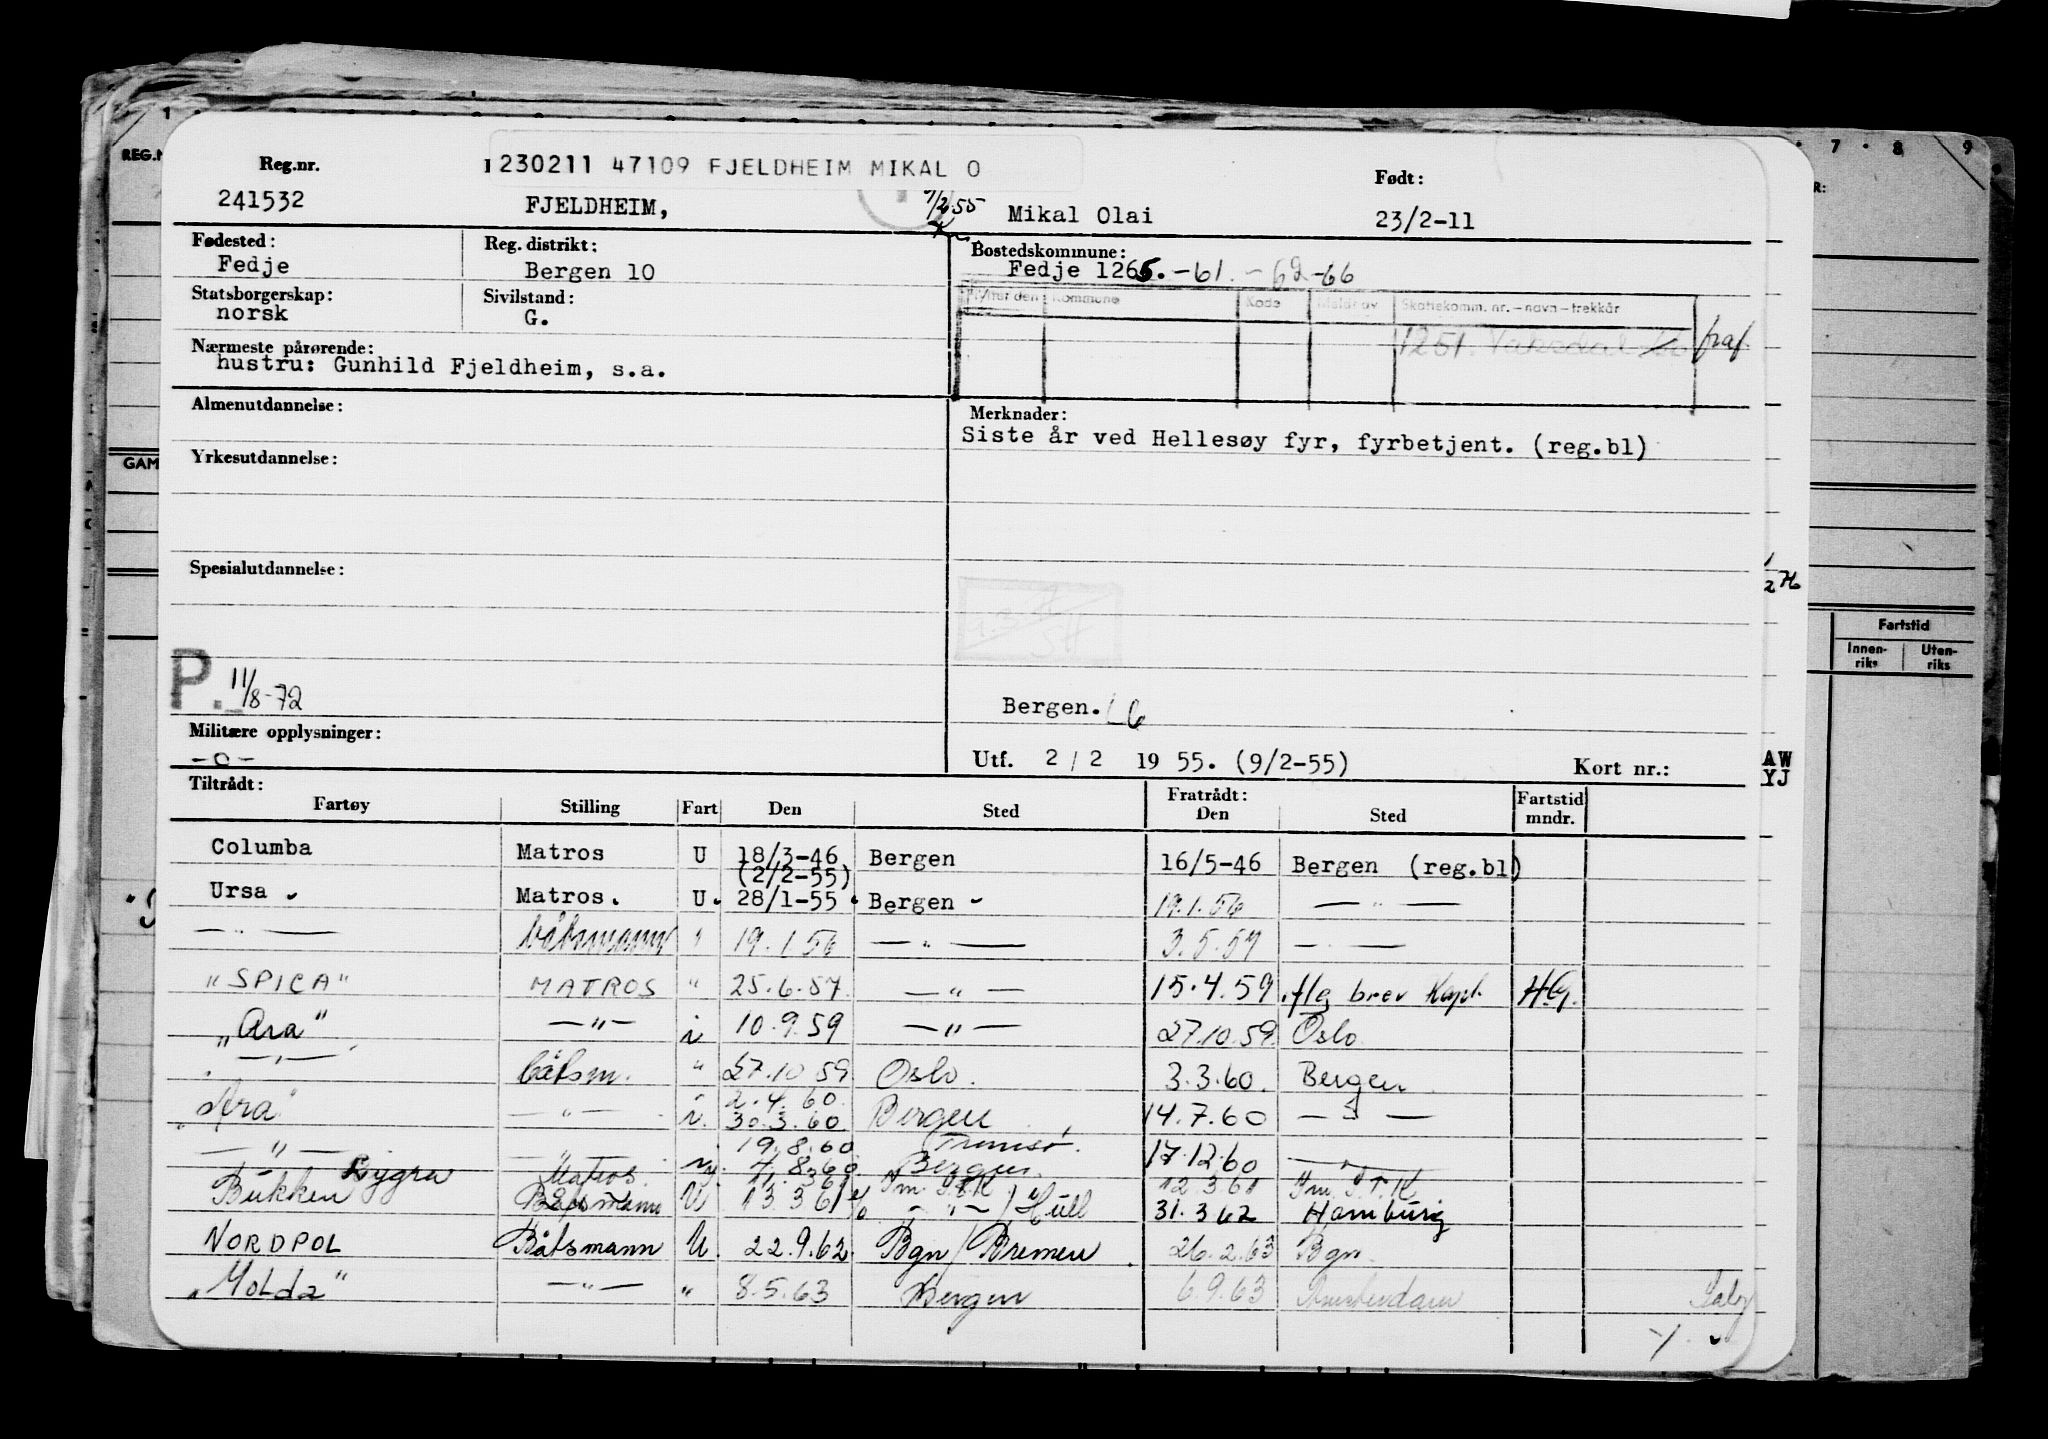 230211 47109 FJELDHEIM MIKAL O
Reg.nr. Født:
241532 FJELDHEIM, 9/2 55 Mikal Olai 23/2-11
Fødested: Reg. distrikt: Bostedskommune:
Fedje Bergen 10 Fedje 1265. -61. -62-66
Statsborgerskap: Sivilstand: Flyttet den Kommune Kode Meldt av Skattekomm. nr. - navn - trekkår
norsk G.
1251. fraf.
Nærmeste pårørende:
hustru: Gunhild Fjeldheim, s.a.
Almenutdannelse: Merknader:
Siste år ved Hellesøy fyr, fyrbetjent. (reg.bl)
Yrkesutdannelse:
Spesialutdannelse:
P. 11/8-72
Bergen. L6
Militære opplysninger:
-o- Utf. 2 / 2 19 55. (9/2-55) Kort nr.:
Tiltrådt: Fratrådt:
Fartøy Stilling Fart Den Sted Den Sted Fartstid mndr.
Columba Matros U 18/3-46 Bergen 16/5-46 Bergen (reg.bl)
(2/2-55)
Ursa Matros. U. 28/1-55 Bergen 19.1.56 — " —
— " — båtsmann " 19.1 56 — " — 3.5.57 — " —
"SPICA" MATROS " 25.6.57 — " — 15.4.59 .flg brev Kapt. H.G.
"Ara" — " — i 10.9.59 — " — 27.10.59 Oslo
— " — båtsm. " 27.10 59 Oslo. 3.3.60. Bergen
2.4.60
"Ara" — " — i. 30.3.60 Bergen 14.7.60 — " —
19.8.60 Tromsø.
— " — — " — 4.8.60 Bergen 17.12.60 — " —
Lygra Matros. 12.3.61
Bukken Båtsmann U 13.3 61 — " — / Hull 31.3 62 Hamburg
NORDPOL Båtsmann U. 22.9.62 Bgn / Bremen 26.2.63 Bgn.
"Molda" — " — " 8.5.63 Bergen 6.9.63 Amsterdam
REG.N
GAM
7 8 9
Fartstid
Innen-riks Uten-riks
AW
YJ